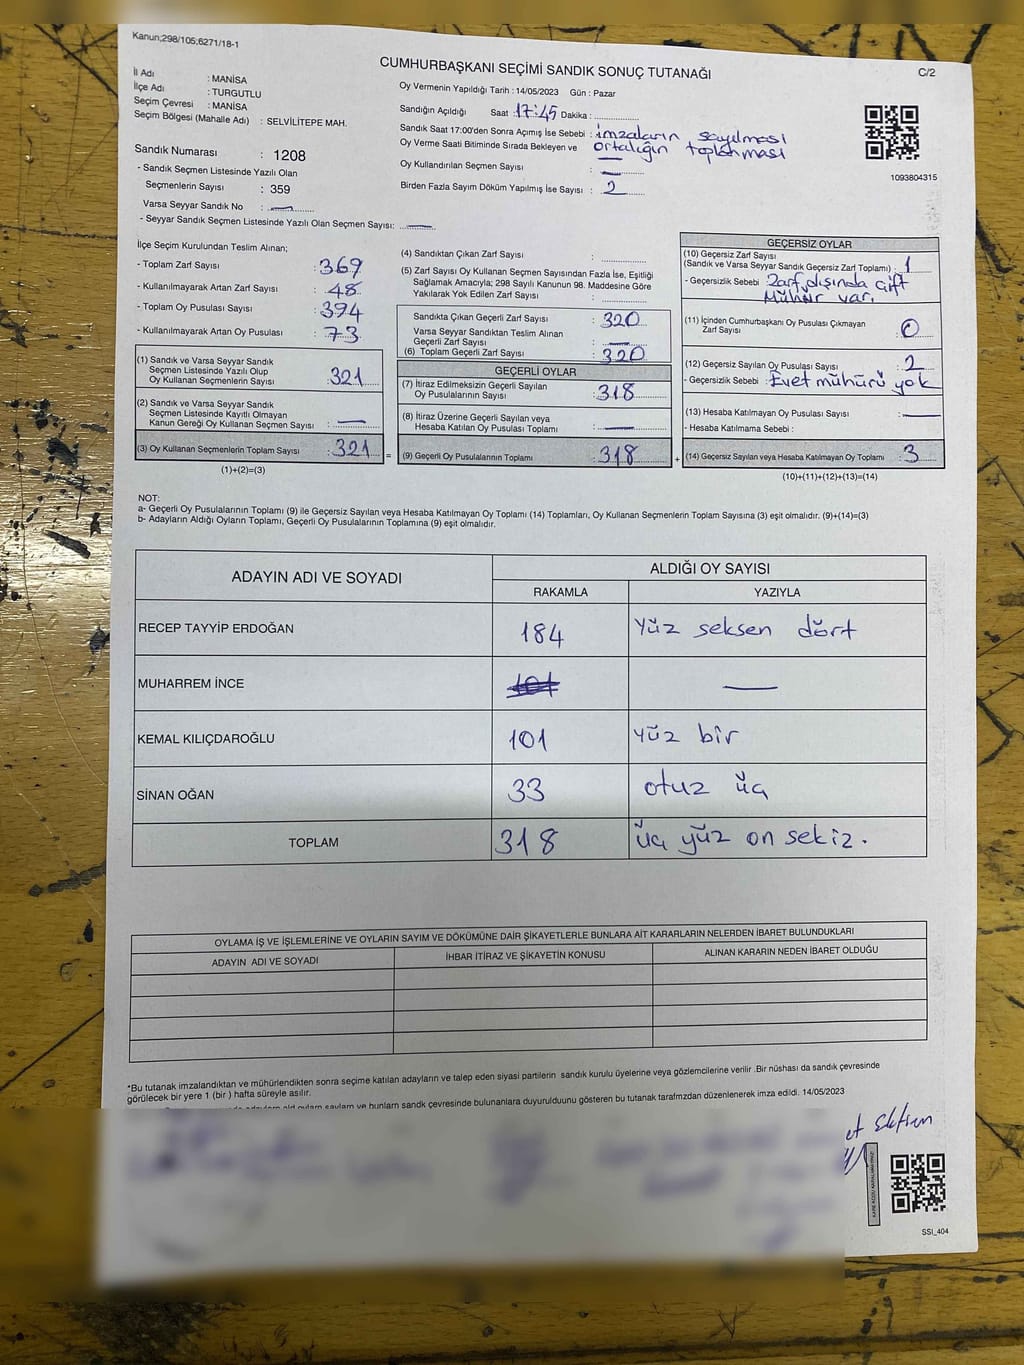 Kanun;298/105;6271/18-1
CUMHURBAŞKANI SEÇİMİ SANDIK SONUÇ TUTANAĞI
C/2
İl Adı : MANİSA
İlçe Adı : TURGUTLU
Seçim Çevresi : MANİSA
Seçim Bölgesi (Mahalle Adı) : SELVİLİTEPE MAH.
Sandık Numarası : 1208
- Sandık Seçmen Listesinde Yazılı Olan
Seçmenlerin Sayısı : 359
Varsa Seyyar Sandık No : —
- Seyyar Sandık Seçmen Listesinde Yazılı Olan Seçmen Sayısı: —
Oy Vermenin Yapıldığı Tarih : 14/05/2023 Gün : Pazar
Sandığın Açıldığı Saat : 17:45 Dakika :
Sandık Saat 17:00'den Sonra Açımış İse Sebebi : imzaların sayılması
Oy Verme Saati Bitiminde Sırada Bekleyen ve ortalığın toplanması
Oy Kullandırılan Seçmen Sayısı : —
Birden Fazla Sayım Döküm Yapılmış İse Sayısı : 2
1093804315
İlçe Seçim Kurulundan Teslim Alınan;
- Toplam Zarf Sayısı : 369
- Kullanılmayarak Artan Zarf Sayısı : 48
- Toplam Oy Pusulası Sayısı : 394
- Kullanılmayarak Artan Oy Pusulası : 73
(1) Sandık ve Varsa Seyyar Sandık
Seçmen Listesinde Yazılı Olup
Oy Kullanan Seçmenlerin Sayısı : 321
(2) Sandık ve Varsa Seyyar Sandık
Seçmen Listesinde Kayıtlı Olmayan
Kanun Gereği Oy Kullanan Seçmen Sayısı : —
(3) Oy Kullanan Seçmenlerin Toplam Sayısı : 321
(1)+(2)=(3)
=
(4) Sandıktan Çıkan Zarf Sayısı :
(5) Zarf Sayısı Oy Kullanan Seçmen Sayısından Fazla İse, Eşitliği
Sağlamak Amacıyla; 298 Sayılı Kanunun 98. Maddesine Göre
Yakılarak Yok Edilen Zarf Sayısı :
Sandıkta Çıkan Geçerli Zarf Sayısı : 320
Varsa Seyyar Sandıktan Teslim Alınan
Geçerli Zarf Sayısı : —
(6) Toplam Geçerli Zarf Sayısı : 320
GEÇERLİ OYLAR
(7) İtiraz Edilmeksizin Geçerli Sayılan
Oy Pusulalarının Sayısı : 318
(8) İtiraz Üzerine Geçerli Sayılan veya
Hesaba Katılan Oy Pusulası Toplamı : —
(9) Geçerli Oy Pusulalarının Toplamı : 318
+
GEÇERSİZ OYLAR
(10) Geçersiz Zarf Sayısı
(Sandık ve Varsa Seyyar Sandık Geçersiz Zarf Toplamı) : 1
- Geçersizlik Sebebi : Zarf dışında çift
Mühür var.
(11) İçinden Cumhurbaşkanı Oy Pusulası Çıkmayan
Zarf Sayısı : 0
(12) Geçersiz Sayılan Oy Pusulası Sayısı : 2
- Geçersizlik Sebebi : Evet mühürü yok
(13) Hesaba Katılmayan Oy Pusulası Sayısı : —
- Hesaba Katılmama Sebebi :
(14) Geçersiz Sayılan veya Hesaba Katılmayan Oy Toplamı : 3
(10)+(11)+(12)+(13)=(14)
NOT:
a- Geçerli Oy Pusulalarının Toplamı (9) ile Geçersiz Sayılan veya Hesaba Katılmayan Oy Toplamı (14) Toplamları, Oy Kullanan Seçmenlerin Toplam Sayısına (3) eşit olmalıdır. (9)+(14)=(3)
b- Adayların Aldığı Oyların Toplamı, Geçerli Oy Pusulalarının Toplamına (9) eşit olmalıdır.
ADAYIN ADI VE SOYADI
ALDIĞI OY SAYISI
RAKAMLA YAZIYLA
RECEP TAYYİP ERDOĞAN 184 Yüz seksen dört
MUHARREM İNCE 101 —
KEMAL KILIÇDAROĞLU 101 yüz bir
SİNAN OĞAN 33 otuz üç
TOPLAM 318 üç yüz on sekiz.
OYLAMA İŞ VE İŞLEMLERİNE VE OYLARIN SAYIM VE DÖKÜMÜNE DAİR ŞİKAYETLERLE BUNLARA AİT KARARLARIN NELERDEN İBARET BULUNDUKLARI
ADAYIN ADI VE SOYADI İHBAR İTİRAZ VE ŞİKAYETİN KONUSU ALINAN KARARIN NEDEN İBARET OLDUĞU
*Bu tutanak imzalandıktan ve mühürlendikten sonra seçime katılan adayların ve talep eden siyasi partilerin sandık kurulu üyelerine veya gözlemcilerine verilir .Bir nüshası da sandık çevresinde
görülecek bir yere 1 (bir ) hafta süreyle asılır.
sandık çevresinde bulunanlara duyurulduunu gösteren bu tutanak tarafmzdan düzenlenerek imza edildi. 14/05/2023
SSİ_404